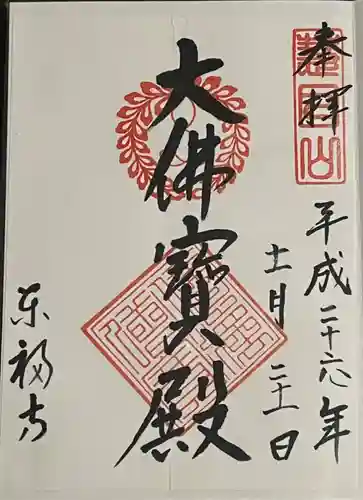 奉拝
平成二十六年
十一月二十一日
大佛寳殿
東福寺